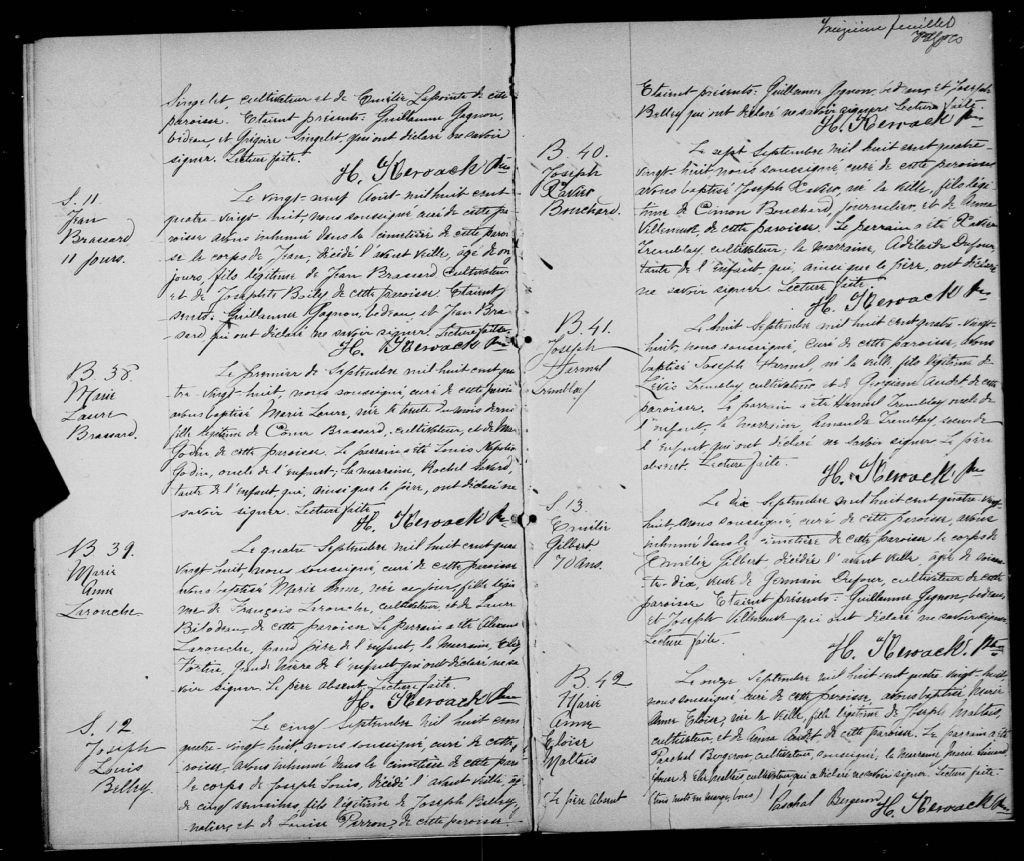 Singelet, cultivateur et de Emélie Lapointe de cette
paroisse. Etaient présents: Guillaume Gagnon,
bedeau, et Grégoire Singelet, qui ont déclaré ne savoir
signer. Lecture faite.
H. Kérouack Ptre
S. 11
Jean
Brassard
11 jours.
Le vingt-neuf Août mil huit cent
quatre-vingt huit, nous soussigné curé de cette pa-
roisse avons inhumé dans le cimetière de cette parois-
se le corps de Jean, décédé l'avant veille, âgé de onze
jours, fils légitime de Jean Brassard cultivateur
et de Josephte Boily de cette paroisse. Etaient
présents: Guillaume Gagnon, bedeau, et Jean Bra-
ssard qui ont déclaré ne savoir signer. Lecture faite.
H. Kérouack Ptre
B 38
Marie
Laure
Brassard.
Le premier de Septembre mil huit cent qua-
tre-vingt-huit, nous soussigné, curé de cette paroisse
avons baptisé Marie Laure, née le trente du mois dernier
fille légitime de Brassard, cultivateur, et de
Godin de cette paroisse. Le parrain a été Louis
Godin, oncle de l'enfant, la marraine, Rachel
tante de l'enfant, qui, ainsi que le père, ont déclaré ne
savoir signer. Lecture faite.
H. Kérouack Ptre
B 39.
Marie
Anne
Larouche
Le quatre Septembre mil huit cent quatre
vingt huit nous soussigné, curé de cette paroisse
avons baptisé Marie Anne, née ce jour, fille légi-
time de François Larouche, cultivateur, et de Laure
Bilodeau, de cette paroisse Le parrain a été
Larouche, grand père de l'enfant, la marraine,
Fortin, grande mère de l'enfant qui ont déclaré ne sa-
voir signer. Le père absent. Lecture faite.
H. Kérouack Ptre
S. 12
Joseph
Louis
Belley
Le cinq Septembre mil huit cent
quatre-vingt huit, nous soussigné, curé de cette
roisse, avons inhumé dans le cimetière de cette paroisse
le corps de Joseph Louis, décédé l'avant veille, âgé
de cinq semaines, fils légitime de Joseph Belley,
et de Louise Perron, de cette paroisse.
Treizième feuillet
Etaient présents: Guillaume Gagnon, bedeau, et Joseph
Belley qui ont déclaré ne savoir signer. Lecture faite
H. Kérouack Ptre
B 40.
Joseph
Xavier
Bouchard.
Le sept Septembre mil huit cent quatre-
vingt-huit nous soussigné, curé de cette paroisse
avons baptisé Joseph Xavier, né la veille, fils légi-
time de Cimon Bouchard, journalier, et de Anna
Villeneuve, de cette paroisse. Le parrain a été Xavier
Tremblay cultivateur, la marraine, Adélaide Dufour
tante de l'enfant qui, ainsi que le père, ont déclaré
ne savoir signer Lecture faite
H. Kérouack Ptre
B. 41.
Joseph
Hermel
Tremblay
Le huit Septembre mil huit cent quatre-vingt-
huit, nous soussigné, curé de cette paroisse, avons
baptisé Joseph Hermel, né la veille, fils légitime de
Tremblay cultivateur et de Audet de cette
paroisse. Le parrain a été Hermel Tremblay oncle de
l'enfant, la marraine, Amanda Tremblay soeur de
l'enfant qui ont déclaré ne savoir signer Le père
absent. Lecture faite.
H. Kérouack Ptre
S. 13
Emélie
Gilbert.
70 Ans.
Le dix Septembre mil huit cent quatre vingt
huit, nous soussigné, curé de cette paroisse, avons
inhumé dans le cimetière de cette paroisse le corps de
Emélie Gilbert, décédée l'avant veille, âgée de soixan-
te-dix, veuve de Germain Dufour, cultivateur de cette
paroisse Etaient présents: Guillaume Gagnon, bedeau,
et Joseph Villeneuve qui ont déclaré ne savoir signer
Lecture faite.
H. Kérouack. Ptre
B 42
Marie
Anne
Eloise
Maltais
Le onze Septembre mil huit cent quatre vingt-huit
nous soussigné curé de cette paroisse, avons baptisé Marie
Anne Eloise, née la veille, fille légitime de Joseph Maltais,
cultivateur, et de Anna Audet de cette paroisse. Le parrain a été
Paschal Bergeron, cultivateur, soussigné, la marraine,
Maltais cultivateur, qui a déclaré ne savoir signer. Lecture faite.
(Le père absent
(trois mots en marge, bons) Paschal Bergeron H. Kérouack Ptre